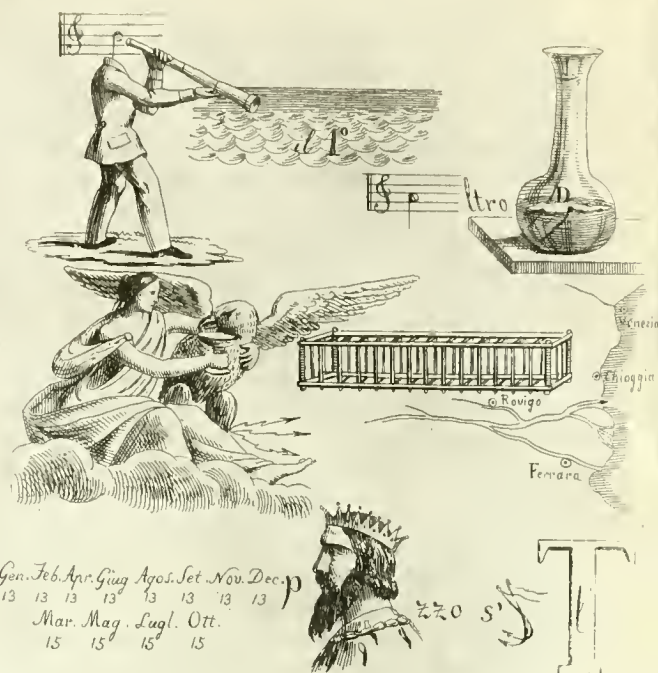 il 1º
ltro
D
Venezia
Chioggia
Rovigo
Ferrara
Gen. Feb. Apr. Giug Agos. Set. Nov. Dec.
13 13 13 13 13 13 13 13
Mar. Mag. Lugl. Ott.
15 15 15 15
p
zzo s'
T